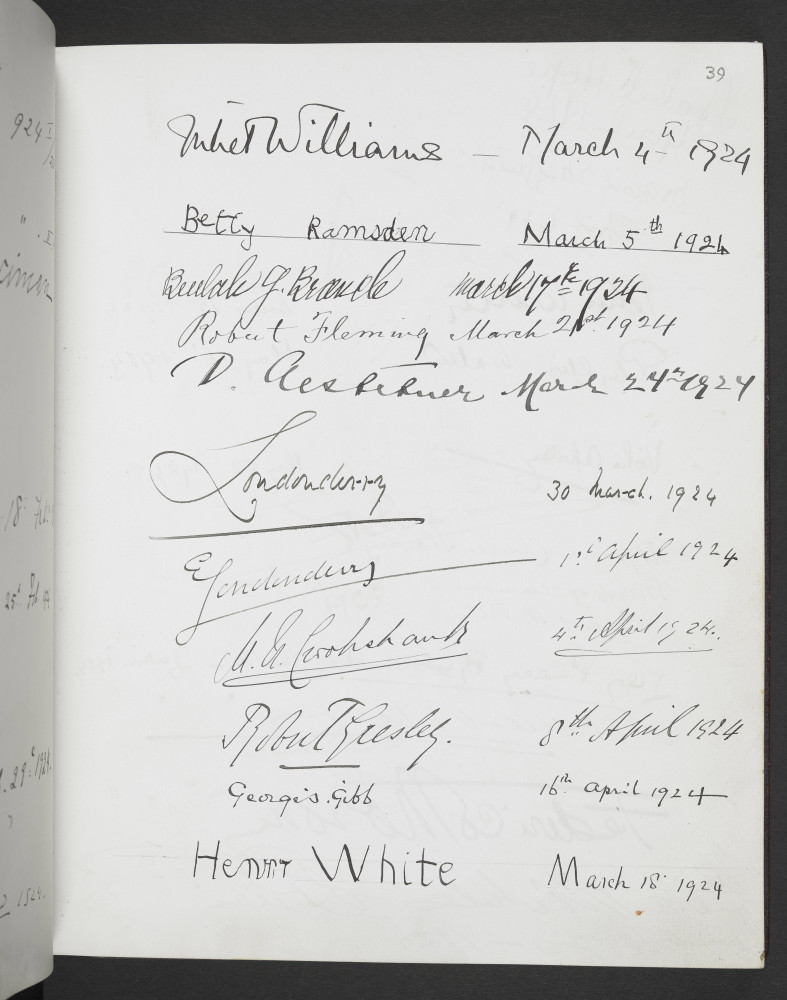 39
Williams — March 4th 1924
Betty Ramsden March 5th 1924
Beulah G. March 17th 1924
Robert Fleming March 21st 1924
D. Gestetner March 24th 1924
Londonderry 30 March. 1924
E Londonderry 1st April 1924
M. H. Crookshank 4th April 1924.
Robert Gresley. 8th April 1924
George S. Gibb 16th April 1924
Henry White March 18 1924
924
25th
1924.